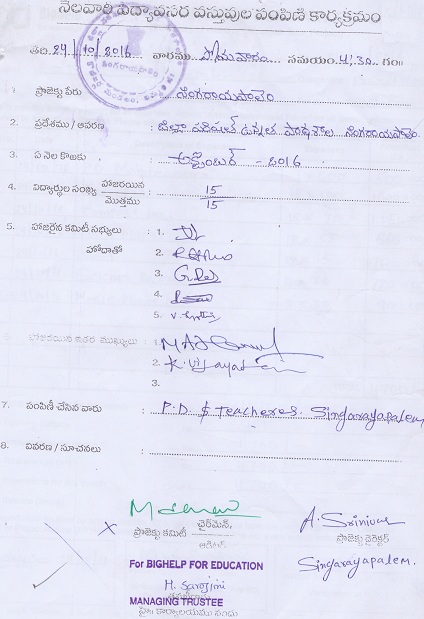 నెలవారీ విద్యావసర వస్తువుల పంపిణి కార్యక్రమం
తేది 24/10/2016 వారము సోమవారం సమయం 4.30 గం॥
1. ప్రాజెక్టు పేరు : సింగరాయపాలెం
2. ప్రదేశము / ఆవరణ : జిల్లా పరిషత్ ఉన్నత పాఠశాల సింగరాయపాలెం.
3. ఏ నెల కొఱకు : అక్టోబర్ - 2016
4. విద్యార్థుల సంఖ్య హాజరయిన : 15
మొత్తము 15
5. హాజరైన కమిటీ సభ్యులు : 1.
హోదాతో 2.
3.
4.
5.
హాజరయిన ఇతర ముఖ్యులు : 1.
2. K. Vijaya
3.
7. పంపిణీ చేసిన వారు : P.D. & Teacheres. Singarayapalem
8. వివరణ / సూచనలు :
ప్రాజెక్టు కమిటీ చైర్‌మెన్,
A. Srinivas
ప్రాజెక్టు డైరెక్టర్
Singarayapalem.
For BIGHELP FOR EDUCATION
M. Sarojini
MANAGING TRUSTEE